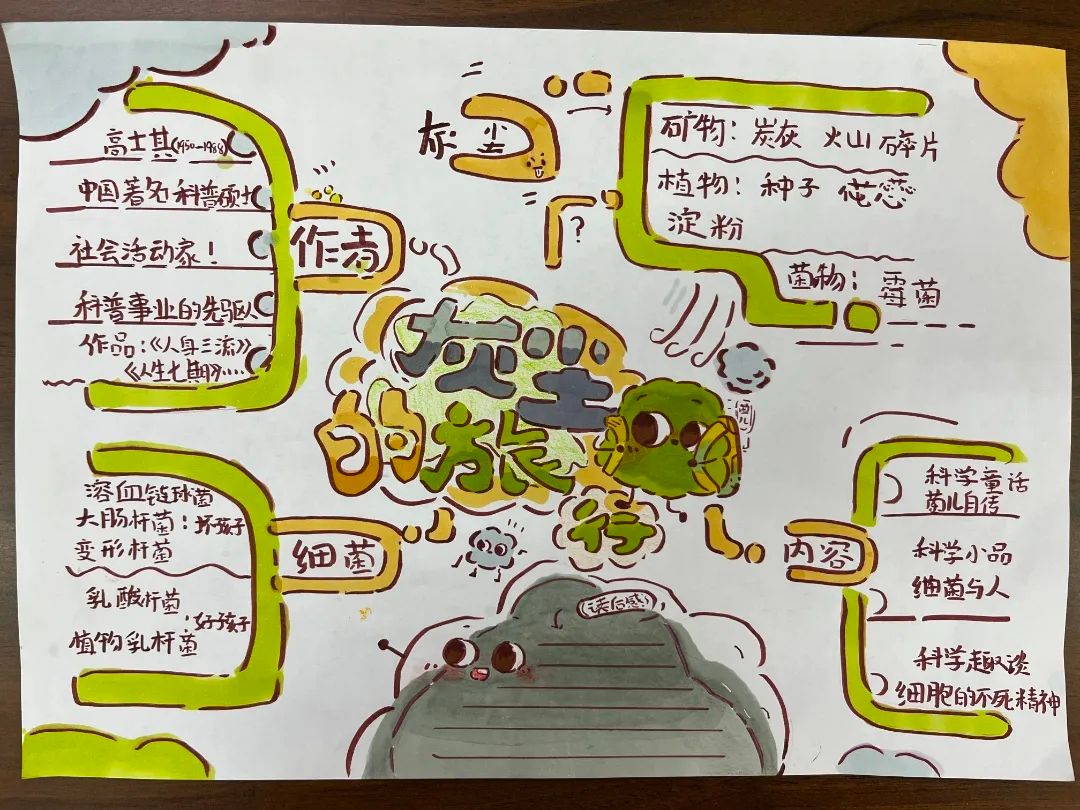 高士其(1950-1988)
中国著名科普硕士
社会活动家!
科普事业的先驱
作品:《人身三流》
《人生七期》……
作者
灰尘
?
矿物: 炭灰 火山碎片
植物: 种子 花蕊
淀粉
菌物: 霉菌
灰尘
的旅
行
菌儿
溶血链球菌
大肠杆菌: 坏孩子
变形杆菌
乳酸杆菌
好孩子
植物乳杆菌
细菌
读后感
内容
科学童话
菌儿自传
科学小品
细菌与人
科学趣谈
细胞的不死精神